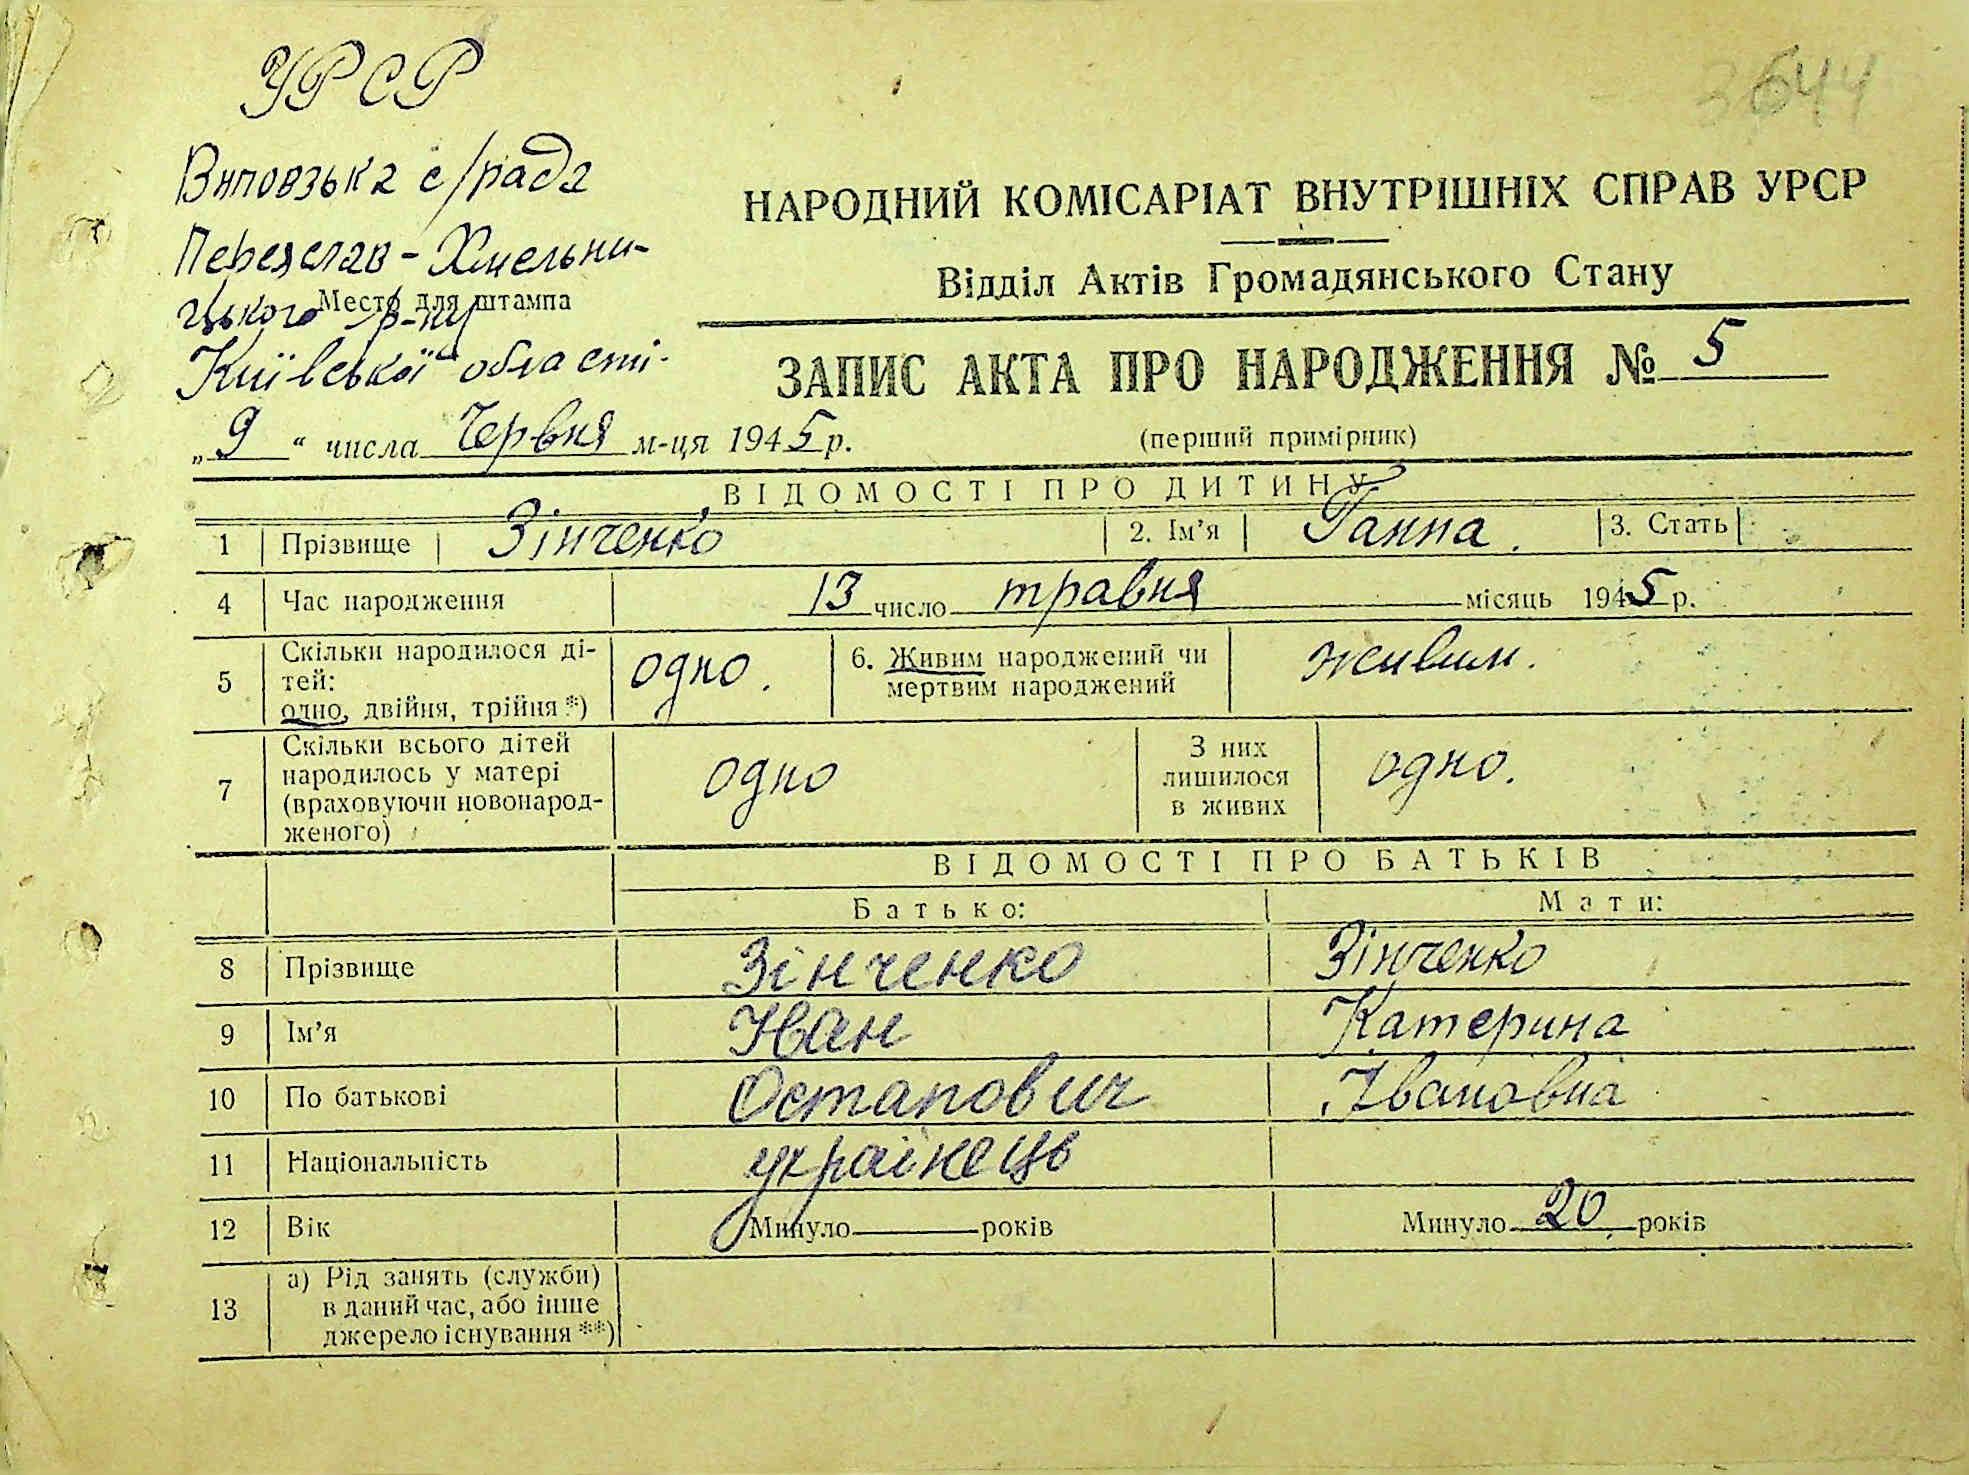 УРСР
3644
Виповзька с/рада
Переяслав-Хмельни-
цького р-ну
Место для штампа
Київської області.
НАРОДНИЙ КОМІСАРІАТ ВНУТРІШНІХ СПРАВ УРСР
Відділ Актів Громадянського Стану
ЗАПИС АКТА ПРО НАРОДЖЕННЯ № 5
„9“ числа Червня м-ця 1945 р.
(перший примірник)
ВІДОМОСТІ ПРО ДИТИНУ
1 Прізвище Зінченко 2. Ім’я Ганна. 3. Стать
4 Час народження 13 число травня місяць 1945 р.
5 Скільки народилося ді-
тей:
одно, двійня, трійня *) одно. 6. Живим народжений чи
мертвим народжений живим.
7 Скільки всього дітей
народилось у матері
(враховуючи новонарод-
женого) одно З них
лишилося
в живих одно.
ВІДОМОСТІ ПРО БАТЬКІВ
Батько: Мати:
8 Прізвище Зінченко Зінченко
9 Ім’я Іван Катерина
10 По батькові Остапович Івановна
11 Національність українець
12 Вік Минуло років Минуло 20 років
13 а) Рід занять (служби)
в даний час, або інше
джерело існування **)